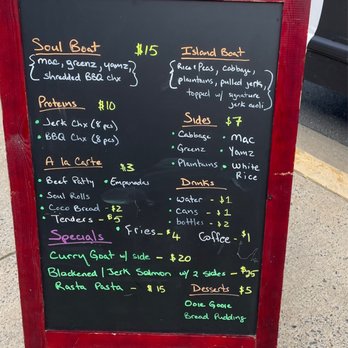 Soul Boat $15
{mac, greenz, yamz,
shredded BBQ chx}
Island Boat
{Rice & Peas, Cabbage,
plantains, pulled jerk,
topped w/ signature
jerk aoli}
Proteins $10
• Jerk Chx (8 pcs)
• BBQ Chx (8 pcs)
Sides $7
• Cabbage • Mac
• Greenz • Yamz
• Plantains • White Rice
A la Carte $3
• Beef Patty • Empanadas
• Soul Rolls
• Coco Bread - $2
• Tenders - $5
• Fries - $4
Drinks
• water - $1
• cans - $1
• bottles - $2
Coffee - $1
Specials
Curry Goat w/ side - $20
Blackened / Jerk Salmon w/ 2 sides - $35
Rasta Pasta - $15
Desserts $5
Ooie Gooie
Bread Pudding